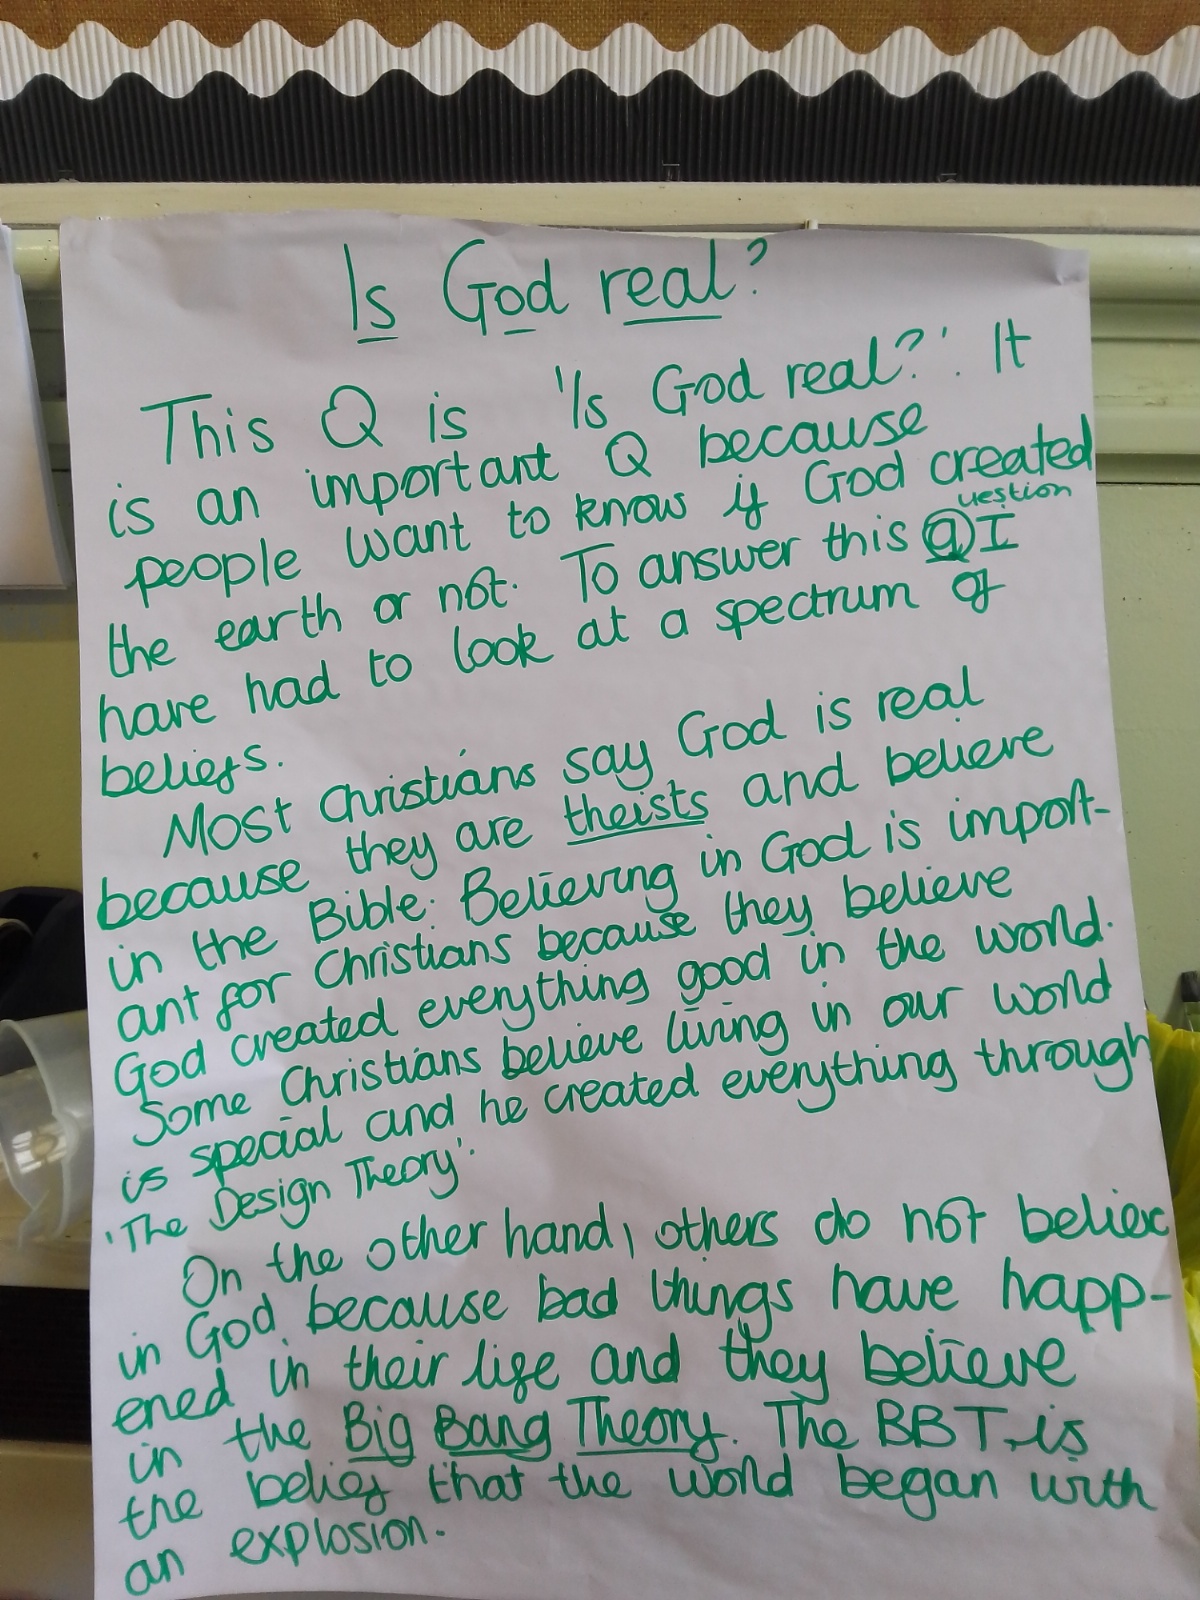 Is God real?
This Q is 'Is God real?'. It
is an important Q because
people want to know if God created
the earth or not. To answer this Question I
have had to look at a spectrum of
beliefs.
Most Christians say God is real
because they are theists and believe
in the Bible. Believing in God is import-
ant for Christians because they believe
God created everything good in the world.
Some Christians believe living in our world
is special and he created everything through
'The Design Theory'.
On the other hand, others do not believe
in God because bad things have happ-
ened in their life and they believe
in the Big Bang Theory. The BBT is
the belief that the world began with
an explosion.